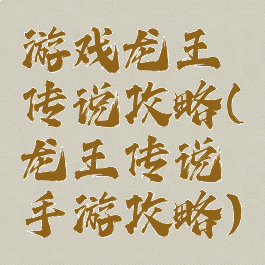 游戏龙王
传说攻略(
龙王传说
手游攻略)